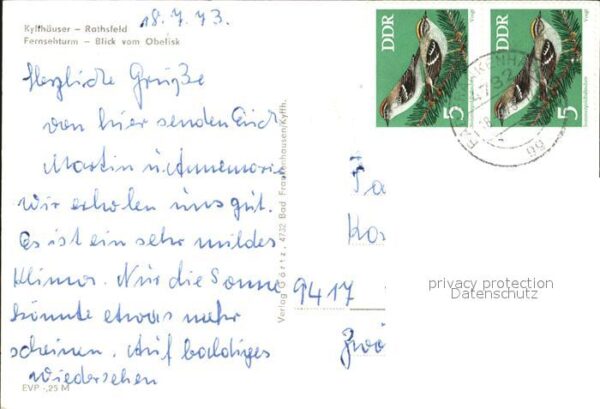 Kyffhäuser – Rathsfeld
Fernsehturm – Blick vom Obelisk
18.7.73.
Herzliche Grüße
von hier senden Euch
Martin u. Annemarie
Wir erholen uns gut.
Es ist ein sehr mildes
Klima. Nur die Sonne
könnte etwas mehr
scheinen. Auf baldiges
Wiedersehen
EVP -,25 M
Verlag Görtz, 4732 Bad Frankenhausen/Kyffh.
DDR
5
DDR
5
Fa
Ka
9417
Zwö
privacy protection
Datenschutz